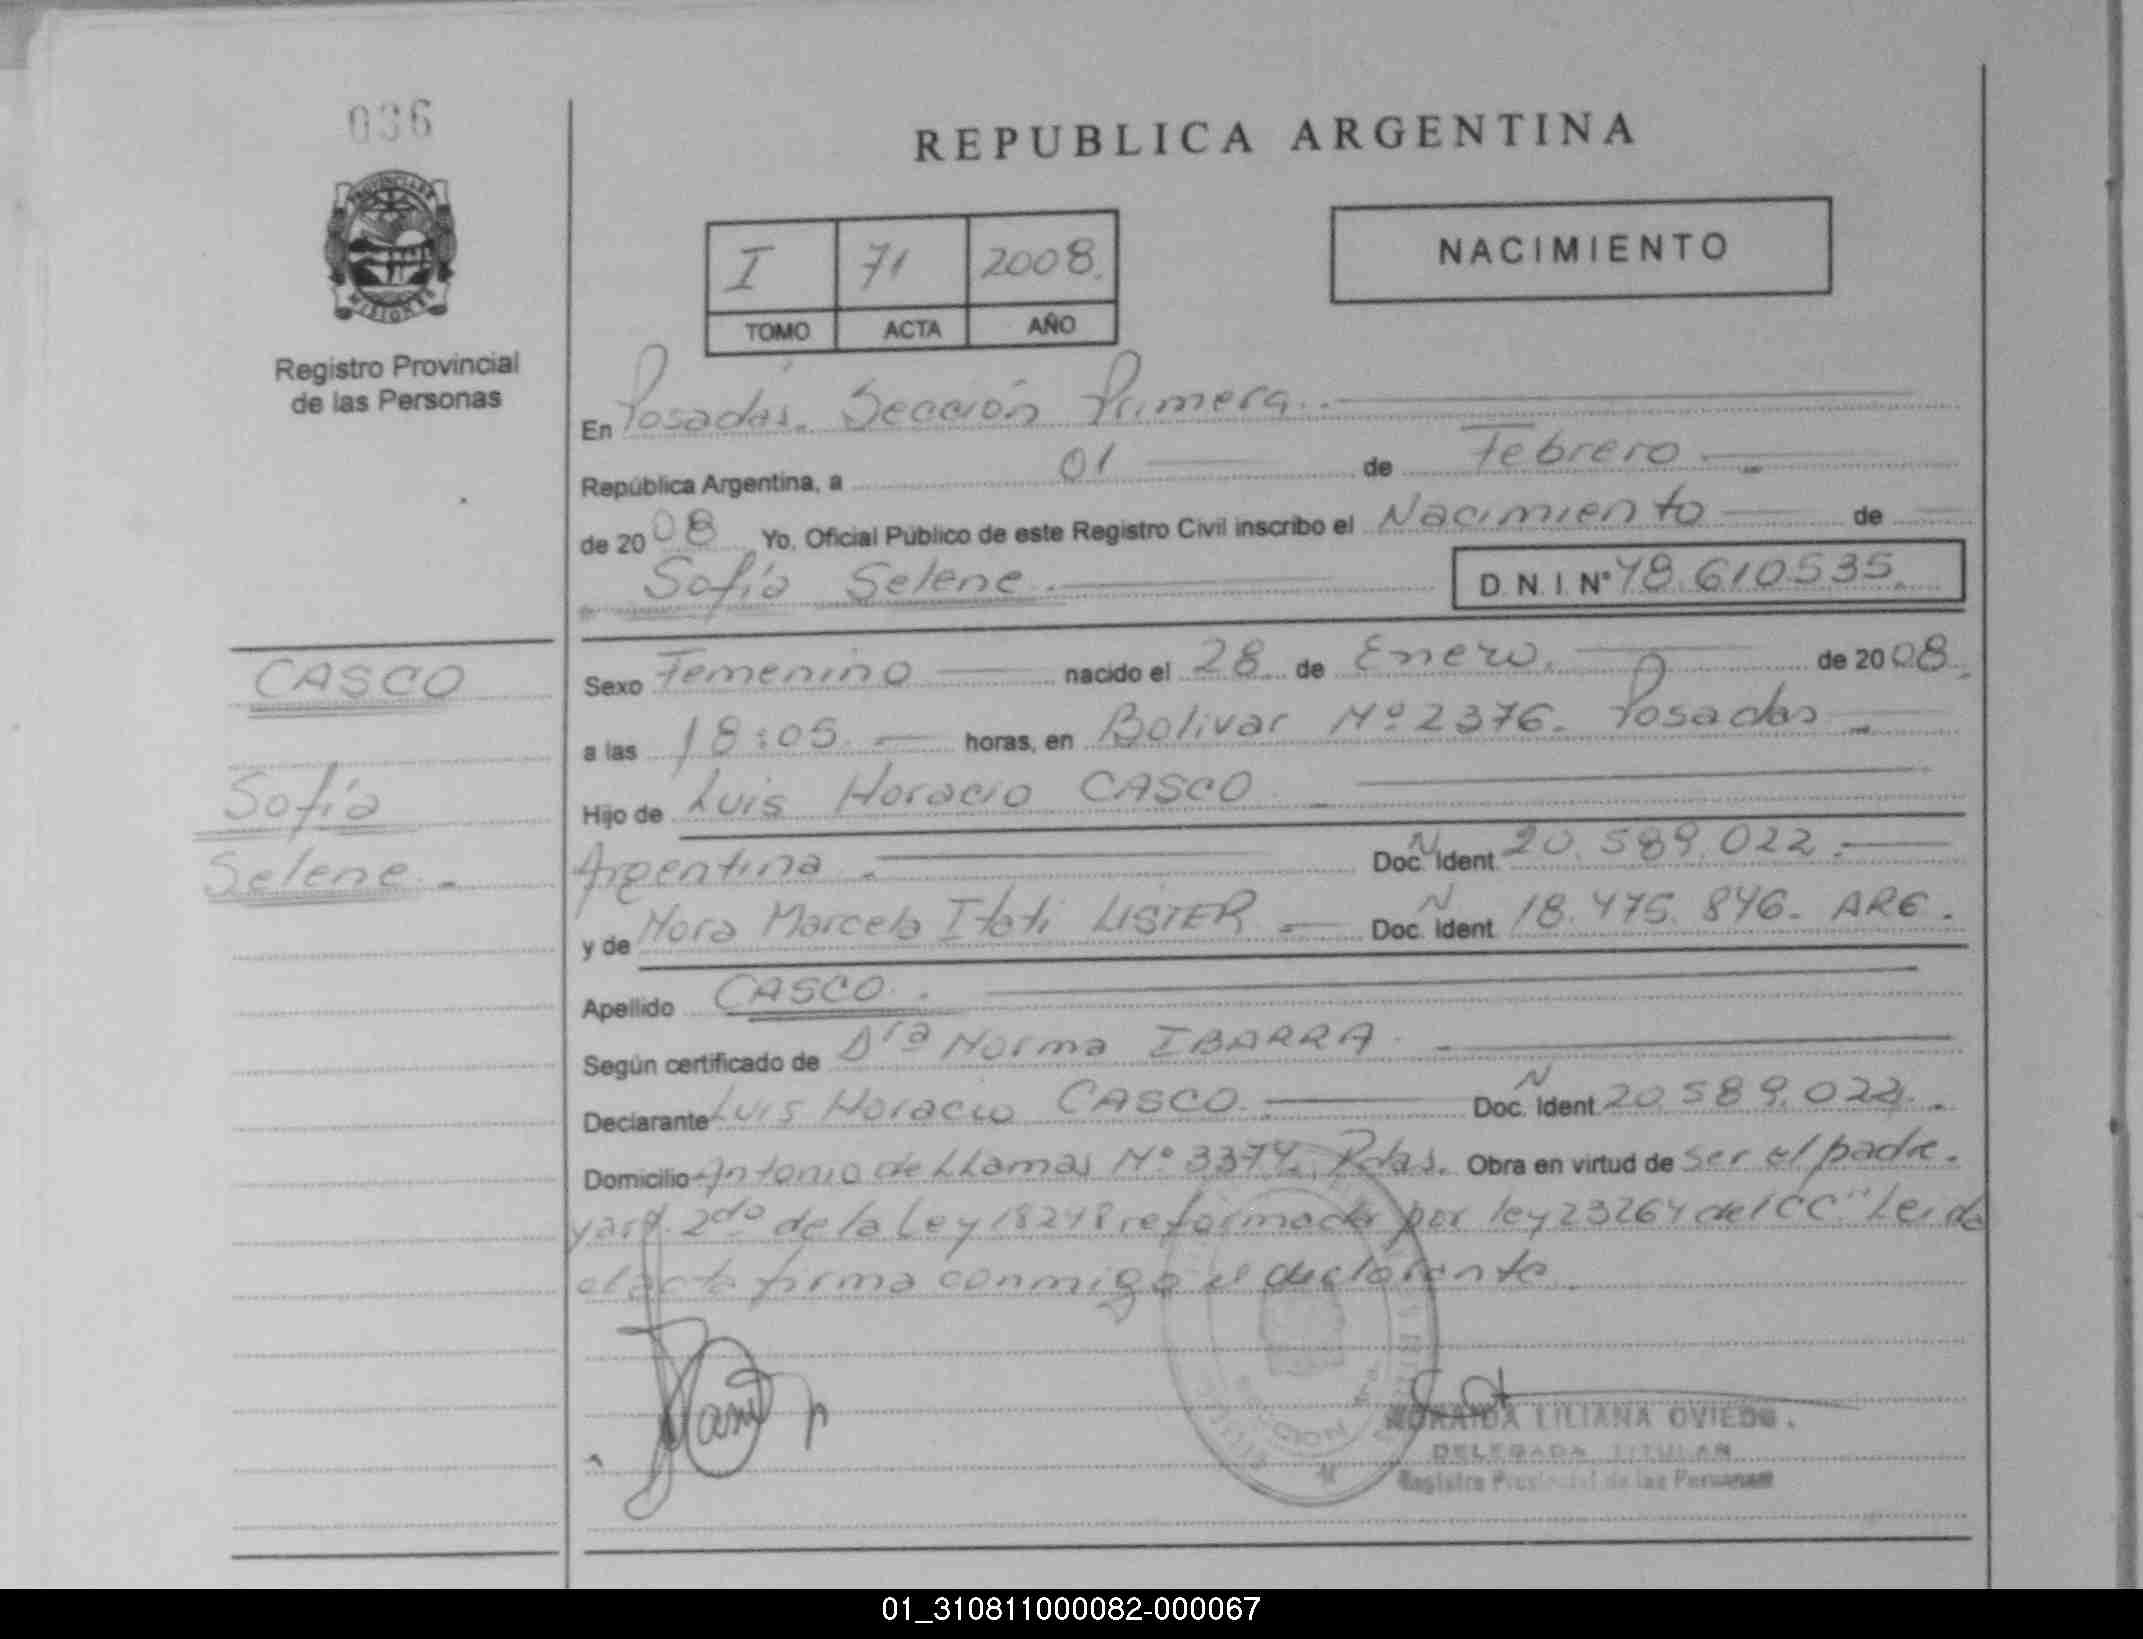 036
REPUBLICA ARGENTINA
PROVINCIA DE
MISIONES
Registro Provincial
de las Personas
I 71 2008.
TOMO ACTA AÑO
NACIMIENTO
En Posadas. Sección Primera.
República Argentina, a 01 de Febrero
de 2008 Yo, Oficial Público de este Registro Civil inscribo el Nacimiento de
Sofía Selene. D.N.I. N° 48.610535.
CASCO
Sofía
Selene.
Sexo Femenino nacido el 28 de Enero. de 2008.
a las 18:05. horas, en Bolivar Nº 2376. Posadas
Hijo de Luis Horacio CASCO
Argentina. Doc. N Ident. 20.589.022.
y de Nora Marcela Itati LISTER Doc. N Ident. 18.475.846. ARG.
Apellido CASCO.
Según certificado de Dra Norma IBARRA
Declarante Luis Horacio CASCO. Doc. N Ident 20.589.022.
Domicilio Antonio de LLamas N° 3374. Pdas. Obra en virtud de ser el padre.
y art. 2do de la Ley 18248 reformada por ley 23264 del CC" Leida
el acta firma conmigo el declarante.
LILIANA OVIEDO.
DELEGADA TITULAR
Registro Provincial de las Personas
01_310811000082-000067